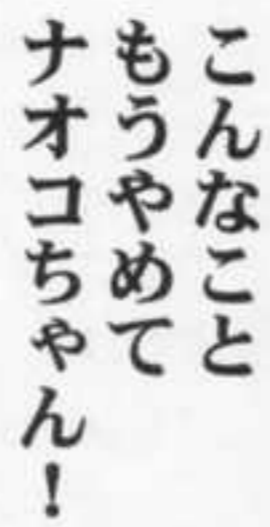 こんなこと
もうやめて
ナオコちゃん！